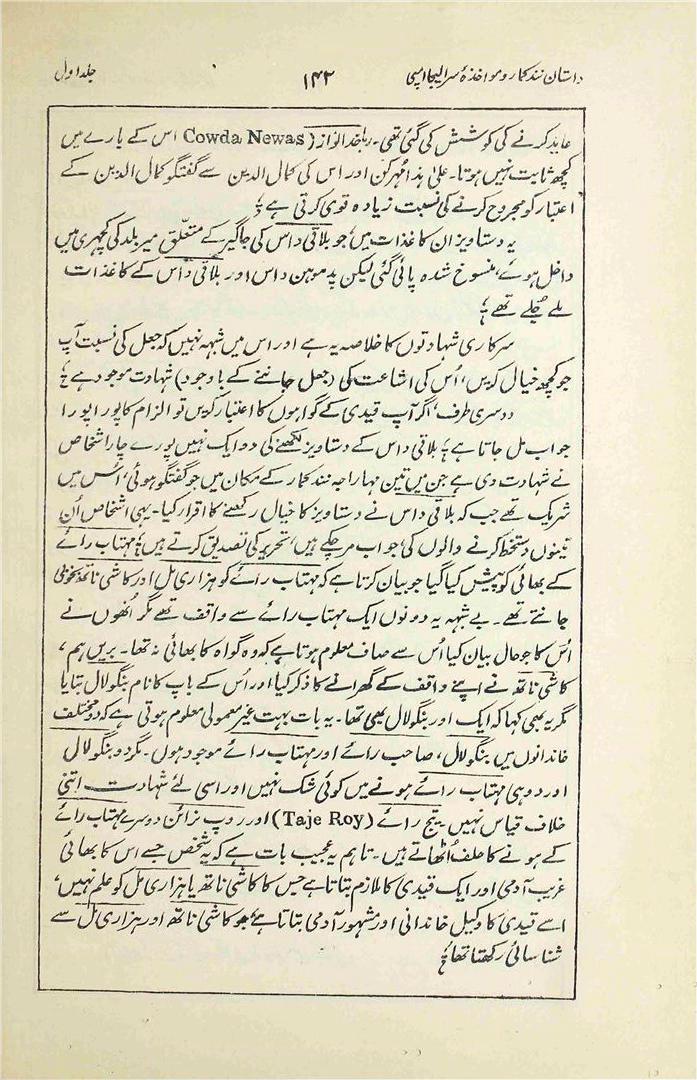 داستان نند کمار و مواخذۂ سر ایلجا امپی ۱۴۲ جلد اول
عاید کرنے کی کوشش کی گئی تھی۔ رہا خدا نواز (Cowda Newas) اس کے بارے میں
کچھ ثابت نہیں ہوتا۔ علیٰ ہذا مُہر کن اور اس کی کمال الدین سے گفتگو کمال الدین کے
اعتبار کو مجروح کرنے کی نسبت زیادہ قوی کرتی ہے ؛
یہ دستاویز ان کاغذات میں جو بلاقی داس کی جاگیر کے متعلق میر بلد کی کچہری میں
داخل ہوئے، منسوخ شدہ پائی گئی لیکن پدموہن داس اور بلاقی داس کے کاغذات
ملے جُلے تھے ؛
سرکاری شہادتوں کا خلاصہ یہ ہے اور اس میں شبہہ نہیں کہ جعل کی نسبت آپ
جو کچھ خیال کریں، اُس کی اشاعت کی (جعل جاننے کے باوجود) شہادت موجود ہے ؛
دوسری طرف، اگر آپ قیدی کے گواہوں کا اعتبار کریں تو الزام کا پورا پورا
جواب مل جاتا ہے ؛ بلاقی داس کے دستاویز لکھنے کی دو ایک نہیں پورے چار اشخاص
نے شہادت دی ہے جن میں تین مہاراجہ نند کمار کے مکان میں جو گفتگو ہوئی، اُس میں
شریک تھے جب کہ بلاقی داس نے دستاویز کا خیال رکھنے کا اقرار کیا۔ یہی اشخاص اُن
تینوں دستخط کرنے والوں کی، جو اب مر چکے ہیں، تحریر کی تصدیق کرتے ہیں ؛ مہتاب رائے
کے بھائی کو پیش کیا گیا جو بیان کرتا ہے کہ مہتاب رائے کو ہزاری مل اور کاشی ناتھ بخوبی
جانتے تھے۔ بے شبہہ یہ دونوں ایک مہتاب رائے سے واقف تھے مگر اُنھوں نے
اُس کا جو حال بیان کیا اُس سے صاف معلوم ہوتا ہے کہ وہ گواہ کا بھائی نہ تھا۔ بریں ہم،
کاشی ناتھ نے اپنے واقف کے گھرانے کا ذکر کیا اور اُس کے باپ کا نام بنگولال بتایا
مگر یہ بھی کہا کہ ایک اور بنگولال بھی تھا۔ یہ بات بہت غیر معمولی معلوم ہوتی ہے کہ دو مختلف
خاندانوں میں بنگولال، صاحب رائے اور مہتاب رائے موجود ہوں۔ مگر دو بنگولال
اور دو ہی مہتاب رائے ہونے میں کوئی شک نہیں اور اسی لئے شہادت اتنی
خلاف قیاس نہیں۔ تیج رائے (Taje Roy) اور روپ نرائن دوسرے مہتاب رائے
کے ہونے کا حلف اُٹھاتے ہیں۔ تاہم یہ عجیب بات ہے کہ یہ شخص جسے اس کا بھائی
غریب آدمی اور ایک قیدی کا ملازم بتاتا ہے جس کا کاشی ناتھ یا ہزاری مل کو علم نہیں،
اسے قیدی کا وکیل خاندانی اور مشہور آدمی بتاتا ہے جو کاشی ناتھ اور ہزاری مل سے
شناسائی رکھتا تھا ؛